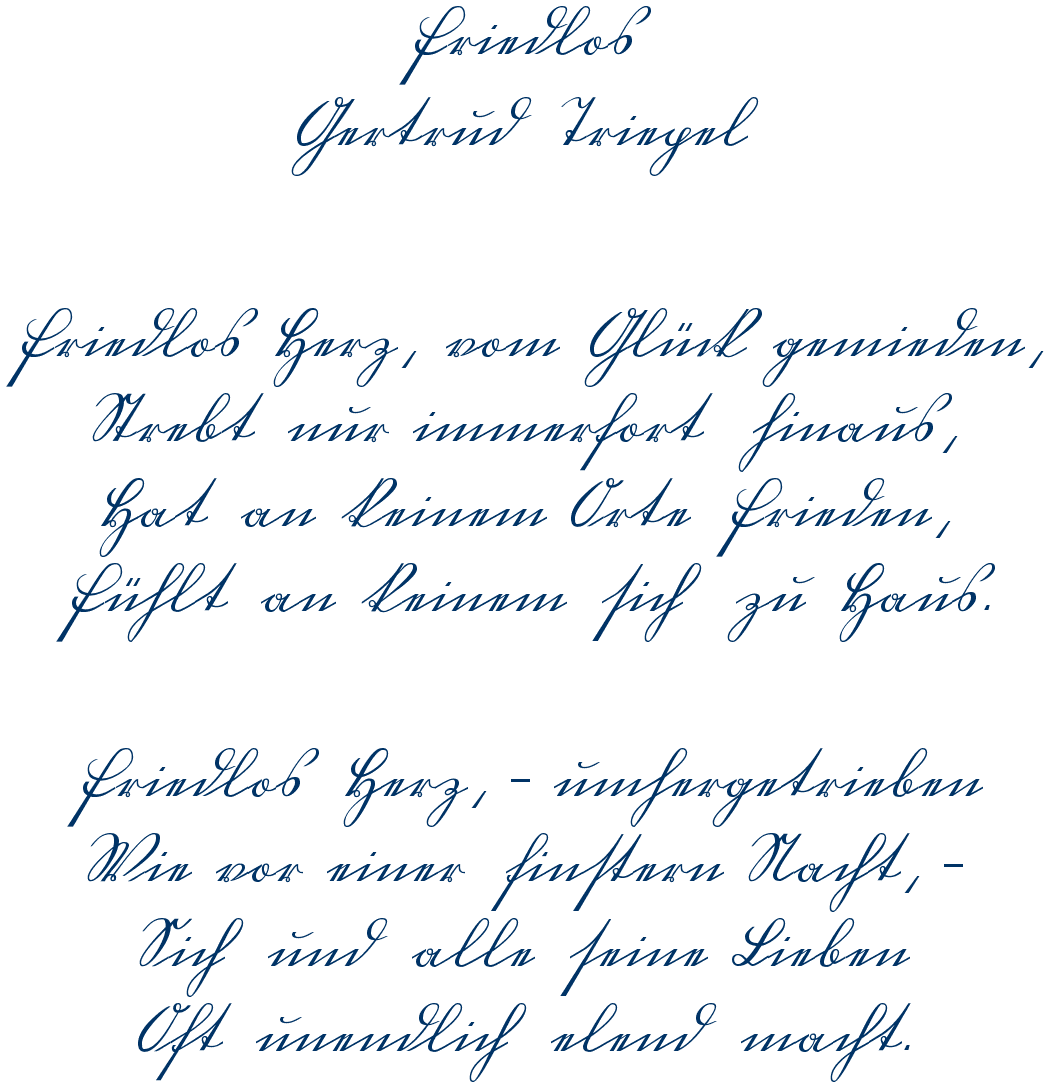 Friedlos
Gertrud Triepel
Friedlos Herz, vom Glück gemieden,
Strebt nur immerfort hinaus,
Hat an keinem Orte Frieden,
Fühlt an keinem sich zu Haus.
Friedlos Herz, – umhergetrieben
Wie vor einer finstern Nacht, –
Sich und alle seine Lieben
Oft unendlich elend macht.